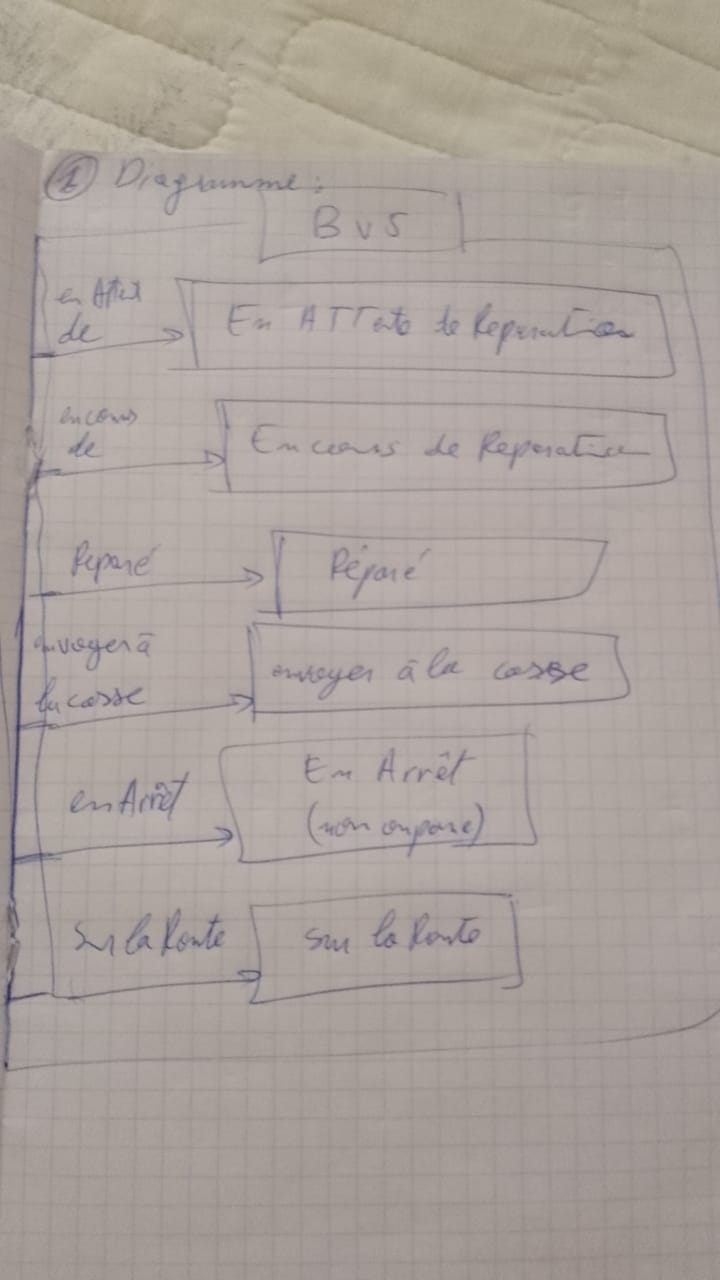 1 Diagramme:
BUS
en Attet
de
En ATTente de Reparation
en cours
de
En cours de Reparation
Reparé
Réparé
envoyer à
la casse
envoyer à la casse
en Arrêt
En Arrêt
(non en pane)
Sur la Route
Sur la Route